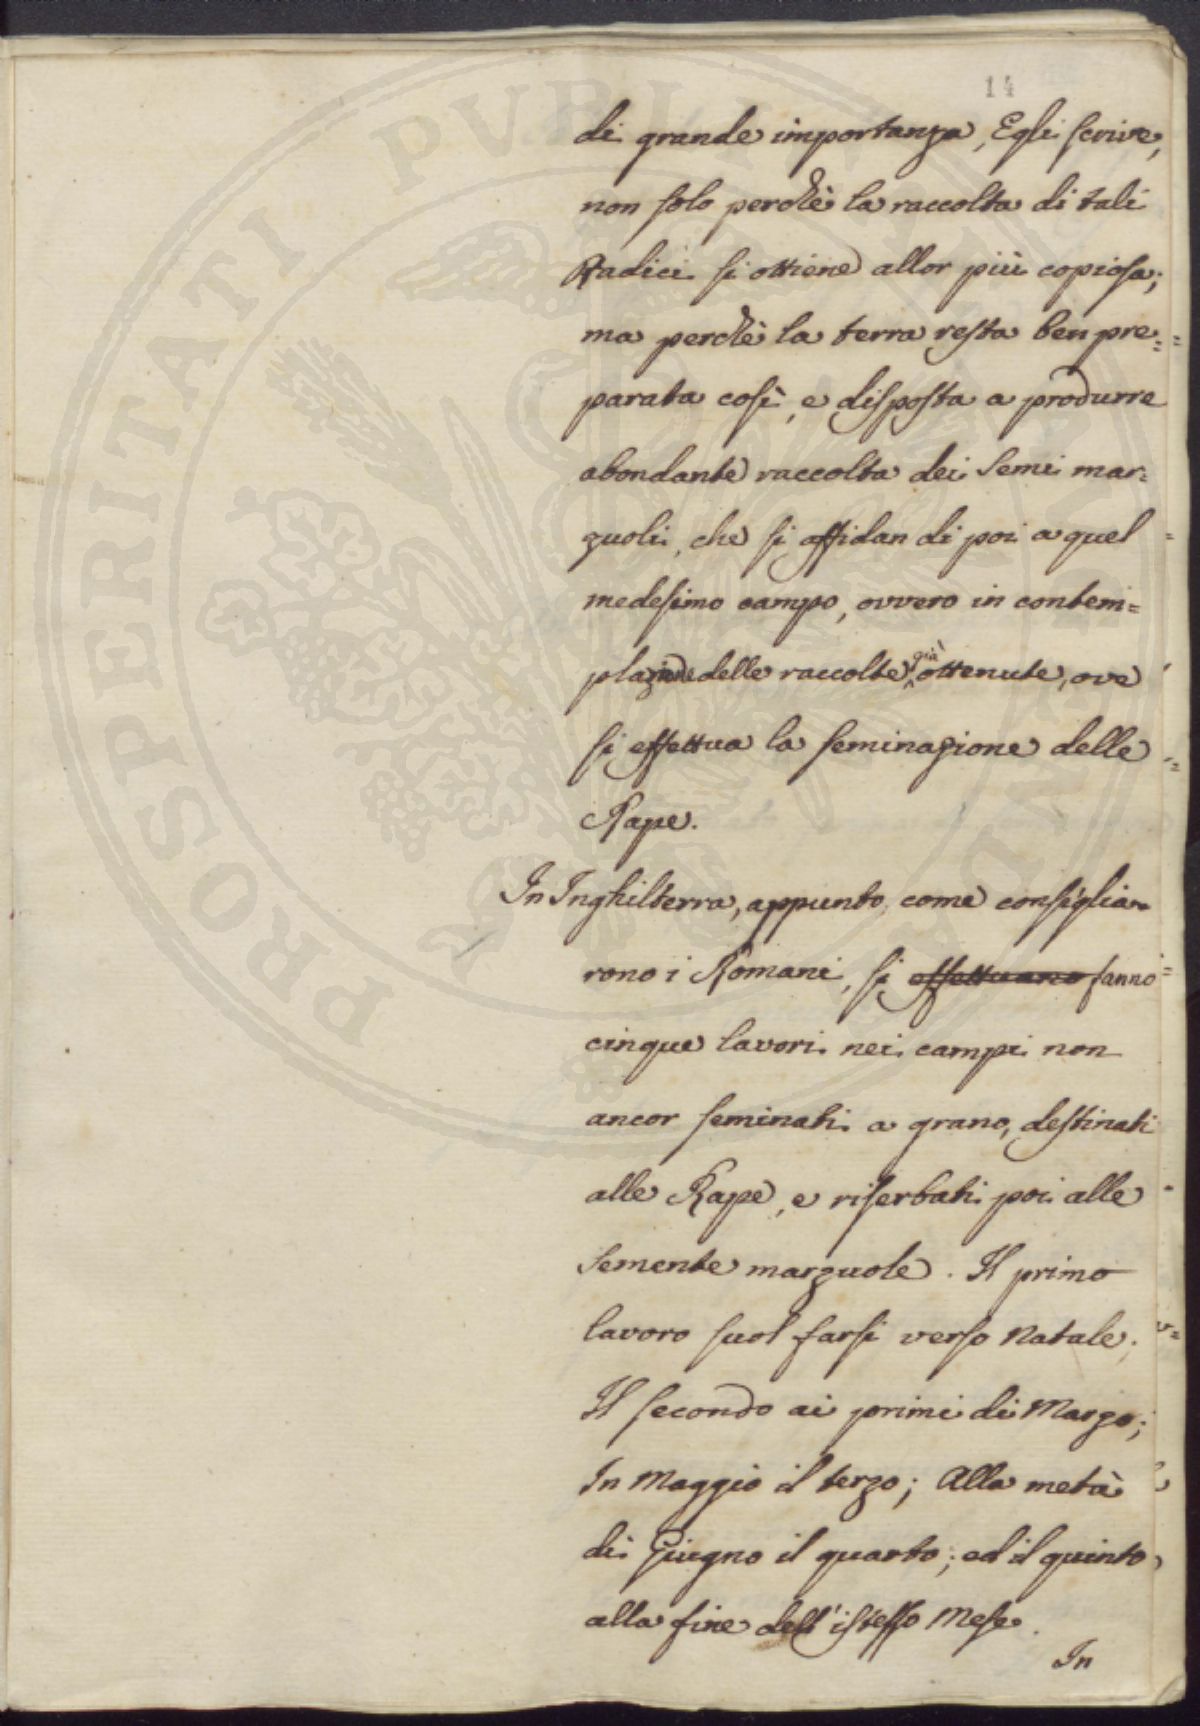 14
di grande importanza, Egli scrive,
non solo perchè la raccolta di tali
Radici si ottiene allor più copiosa;
ma perchè la terra resta ben pre=
parata così, e disposta a produrre
abondante raccolta dei Semi mar=
zuoli, che si affidan di poi a quel
medesimo campo, ovvero in contem=
plazione delle raccolte già ottenute, ove
si effettua la seminazione delle
Rape.
In Inghilterra, appunto, come consiglia=
rono i Romani, si effettuano fanno
cinque lavori nei campi non
ancor seminati a grano, destinati
alle Rape, e riserbati poi alle
Semente marzuole. Il primo
lavoro suol farsi verso Natale.
Il secondo ai primi di Marzo;
In Maggio il terzo; Alla metà
di Giugno il quarto; ed il quinto
alla fine dell'istesso Mese.
In
PROSPERITATI